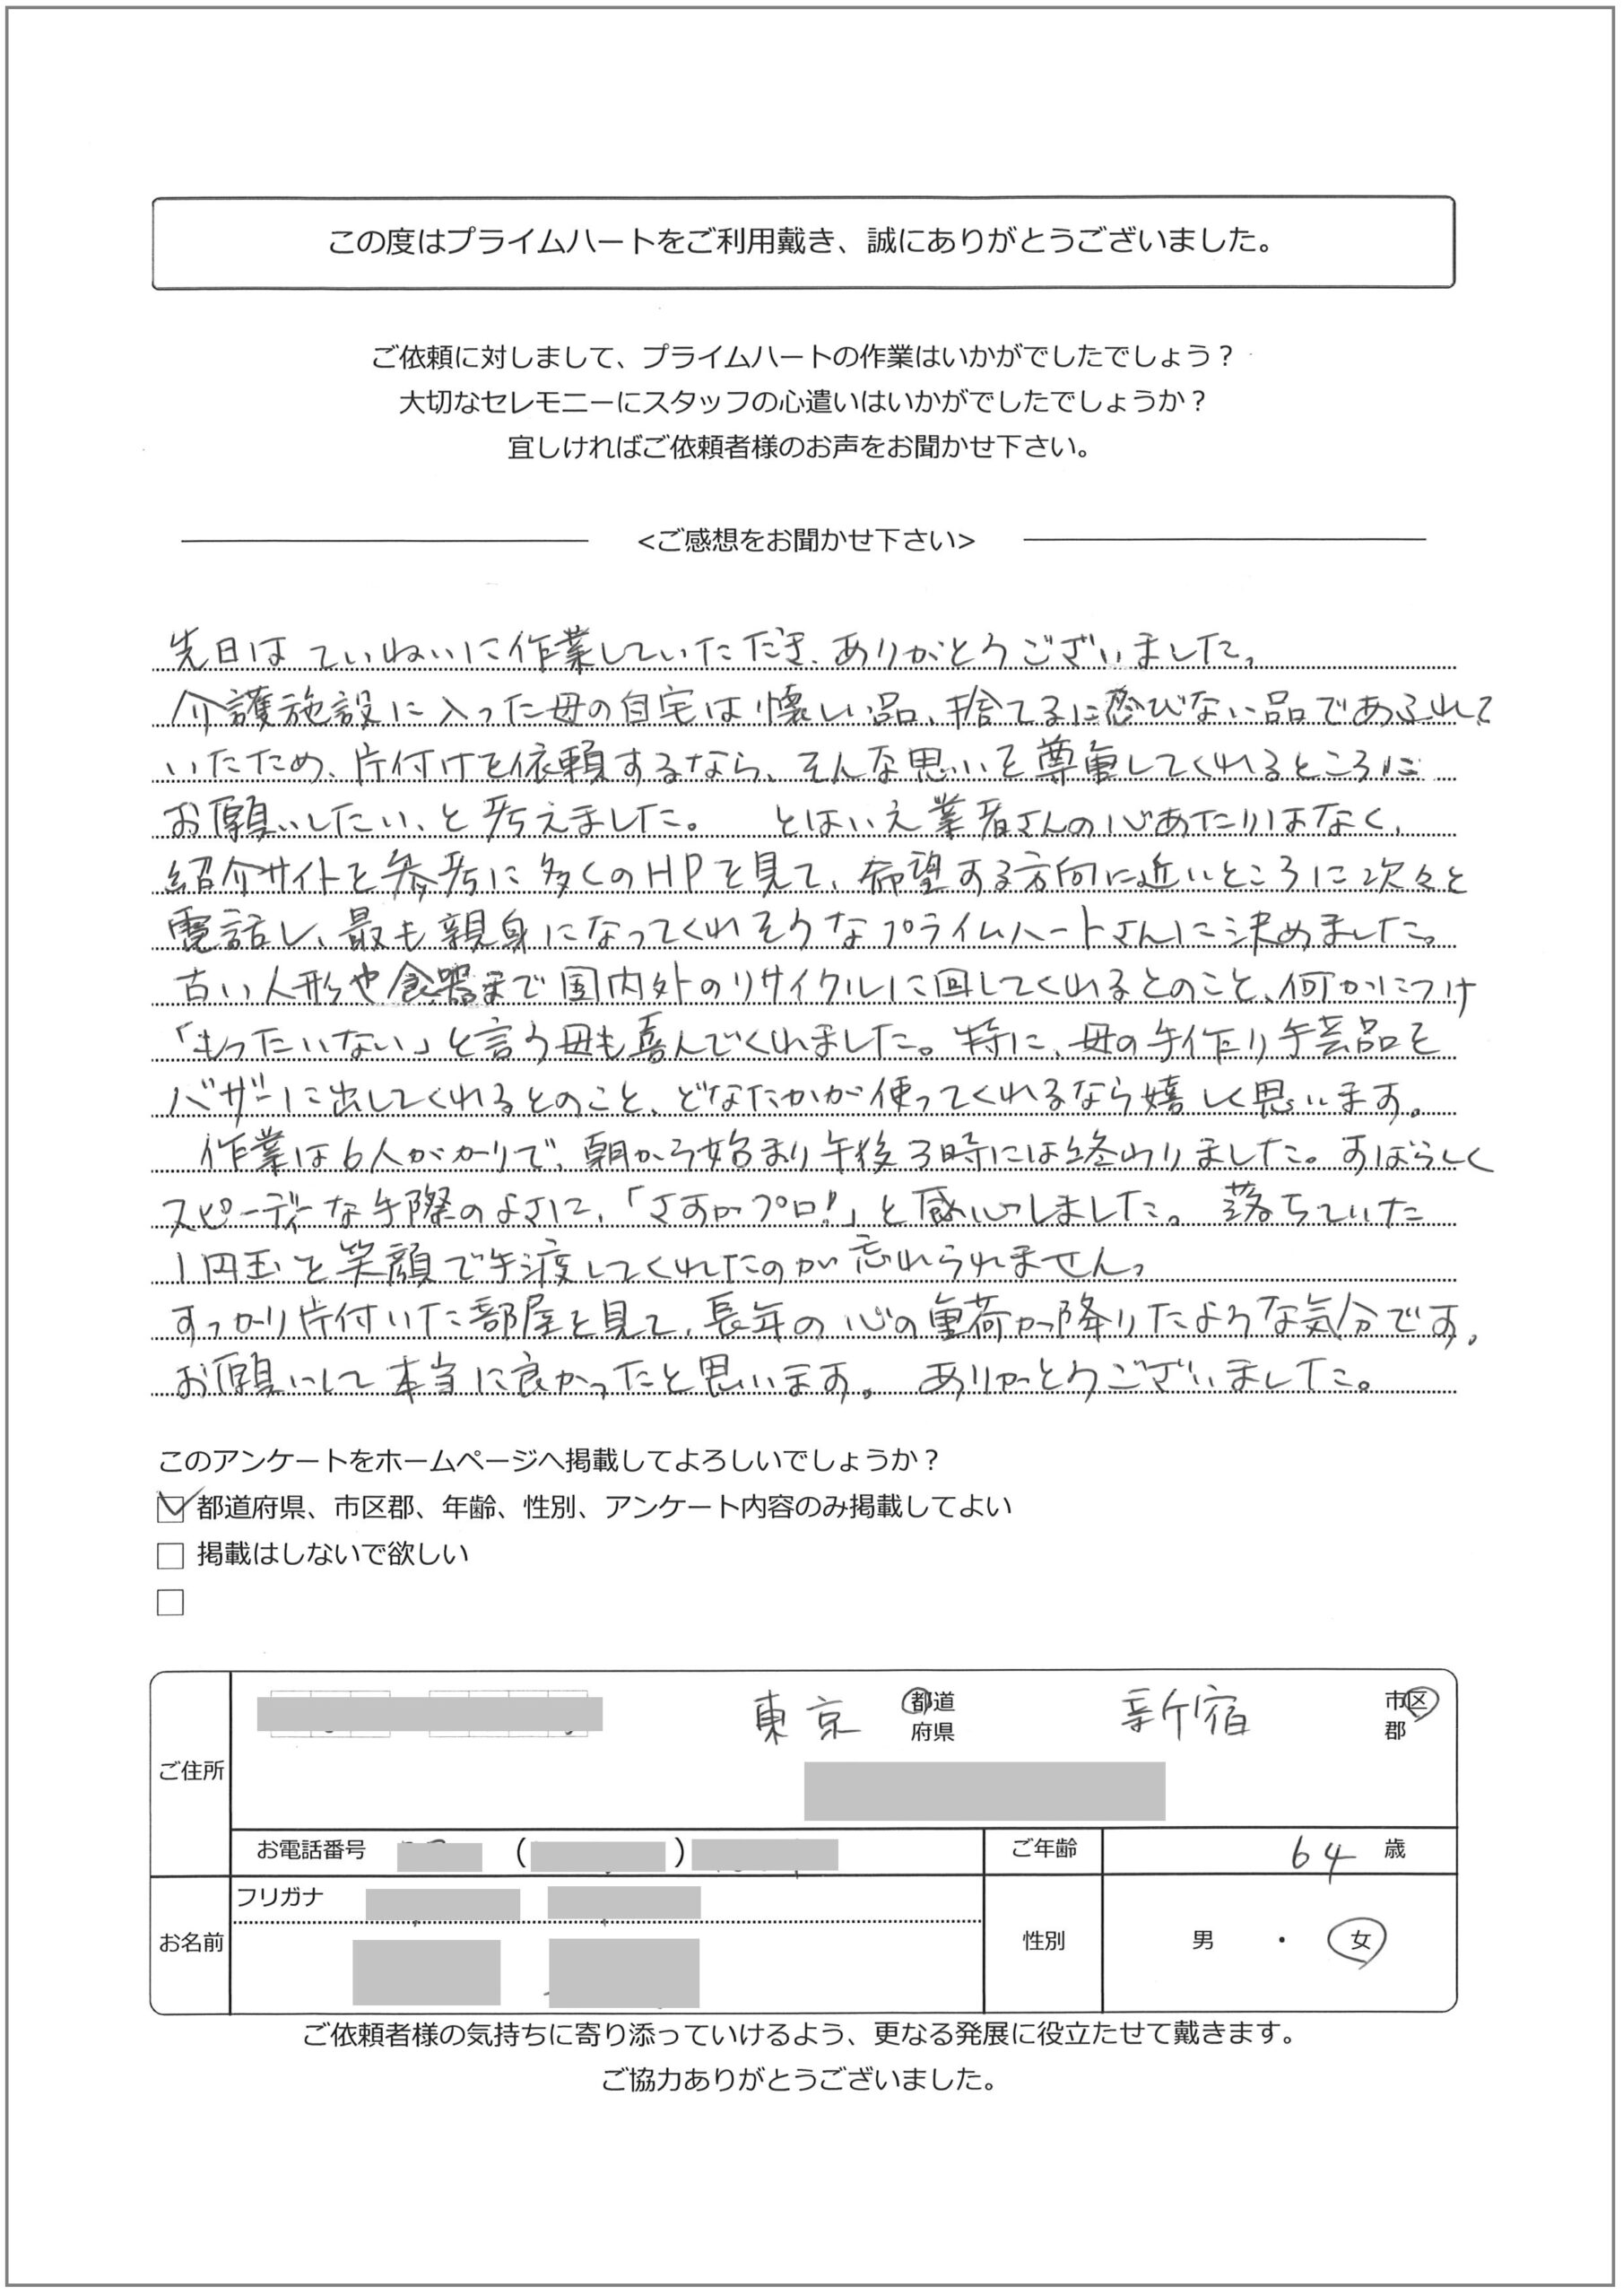 この度はプライムハートをご利用戴き、誠にありがとうございました。
ご依頼に対しまして、プライムハートの作業はいかがでしたでしょう？
大切なセレモニーにスタッフの心遣いはいかがでしたでしょうか？
宜しければご依頼者様のお声をお聞かせ下さい。
<ご感想をお聞かせ下さい>
先日は ていねいに作業していただき、ありがとうございました。
介護施設に入った母の自宅は懐しい品、捨てるに忍びない品であふれて
いたため、片付けを依頼するなら、そんな思いを尊重してくれるところに
お願いしたい、と考えました。 とはいえ業者さんの心あたりはなく、
紹介サイトを参考に多くのHPを見て、希望する方向に近いところに次々と
電話し、最も親身になってくれそうなプライムハートさんに決めました。
古い人形や食器まで国内外のリサイクルに回してくれるとのこと、何かにつけ
「もったいない」と言う母も喜んでくれました。特に、母の手作り手芸品を
バザーに出してくれるとのこと、どなたかが使ってくれるなら嬉しく思います。
作業は6人がかりで、朝から始まり午後3時には終わりました。すばらしく
スピーディーな手際のよさに、「さすがプロ！」と感心しました。 落ちていた
1円玉を笑顔で手渡してくれたのが忘れられません。
すっかり片付いた部屋を見て、長年の心の重荷が降りたような気分です。
お願いして本当に良かったと思います。 ありがとうございました。
このアンケートをホームページへ掲載してよろしいでしょうか？
都道府県、市区郡、年齢、性別、アンケート内容のみ掲載してよい
掲載はしないで欲しい
ご住所 東京 都道府県 新宿 市区郡
お電話番号 ( ) ご年齢 64 歳
フリガナ
お名前 性別 男 ・ 女
ご依頼者様の気持ちに寄り添っていけるよう、更なる発展に役立たせて戴きます。
ご協力ありがとうございました。